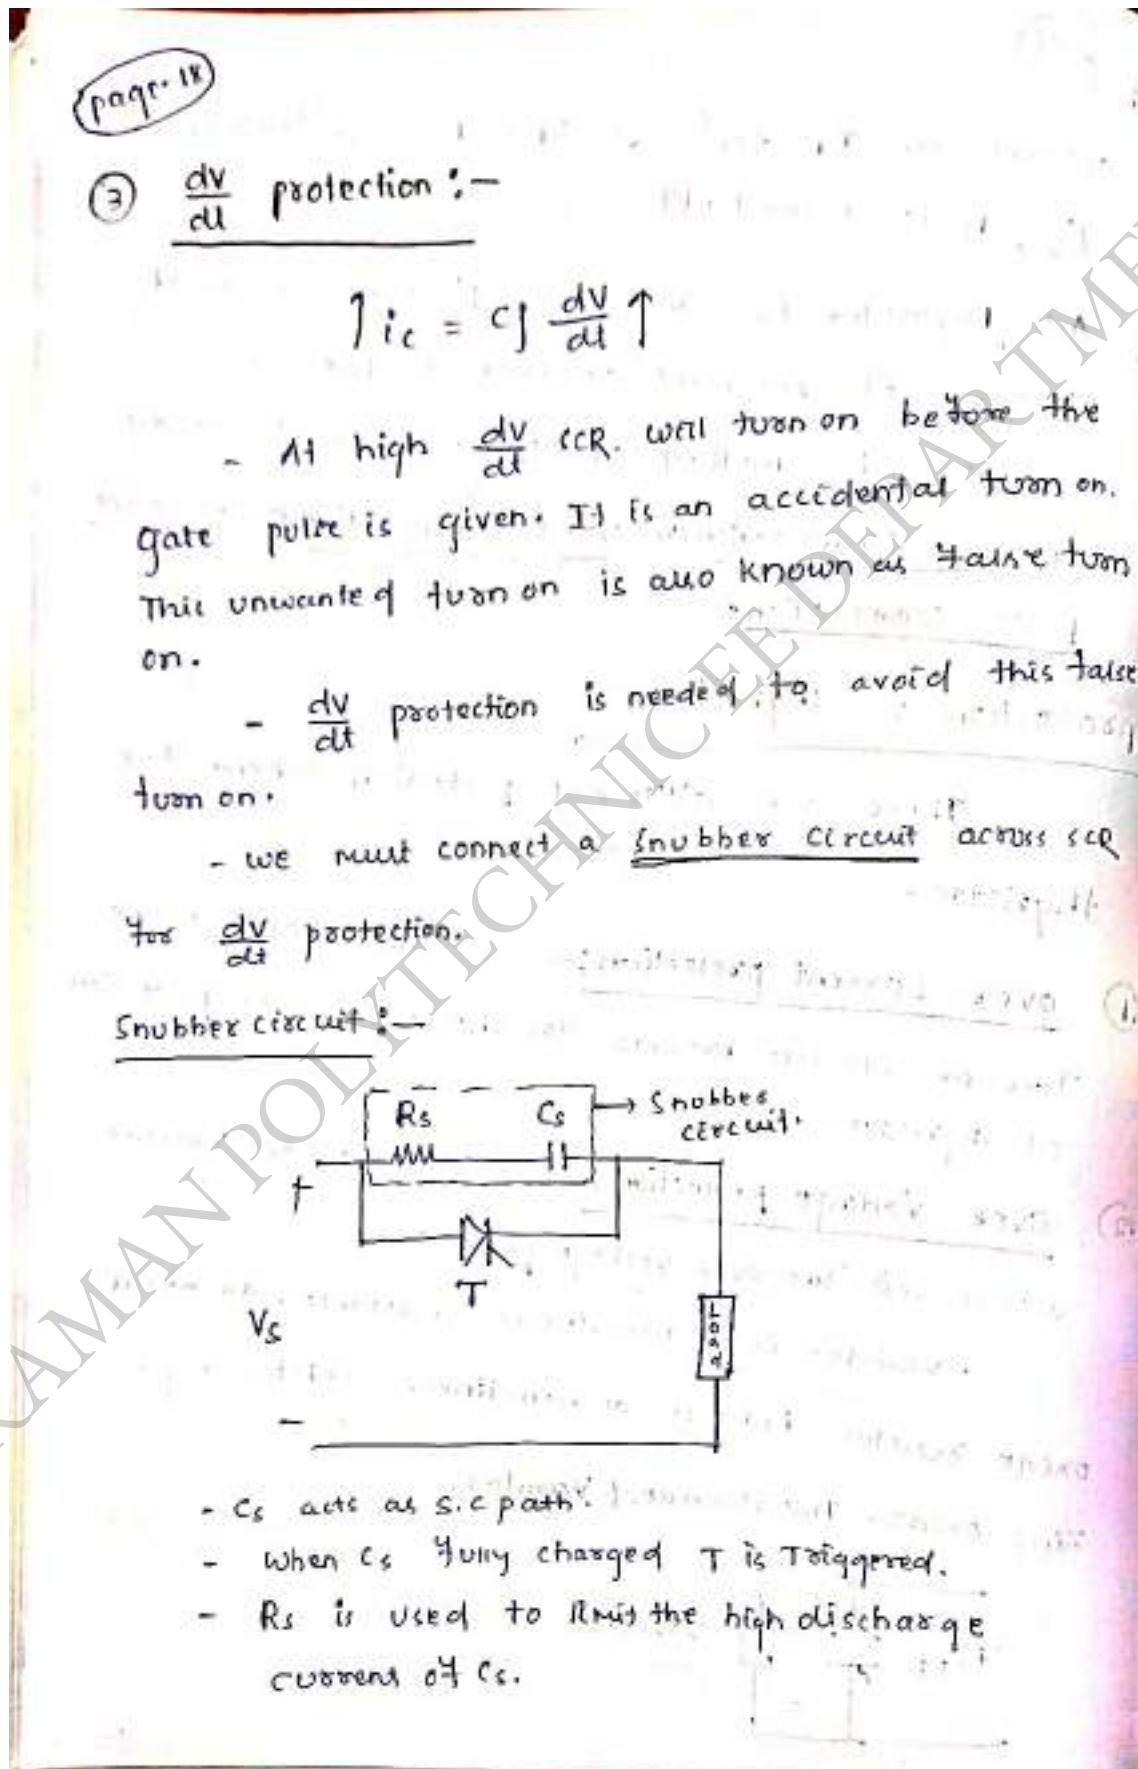 page-18
③ dv/dt protection :-
↑ ic = Cj dv/dt ↑
- At high dv/dt SCR. will turn on before the
gate pulse is given. It is an accidental turn on.
This unwanted turn on is also known as false turn
on.
- dv/dt protection is needed to avoid this false
turn on.
- we must connect a Snubber circuit across SCR
for dv/dt protection.
Snubber circuit :-
Rs Cs → Snubber
circuit.
+
T
Vs
Load
-
- Cs acts as S.C path.
- when Cs fully charged T is Triggered.
- Rs is used to limit the high discharge
current of Cs.
RAMAN POLYTECHNIC EE DEPARTME